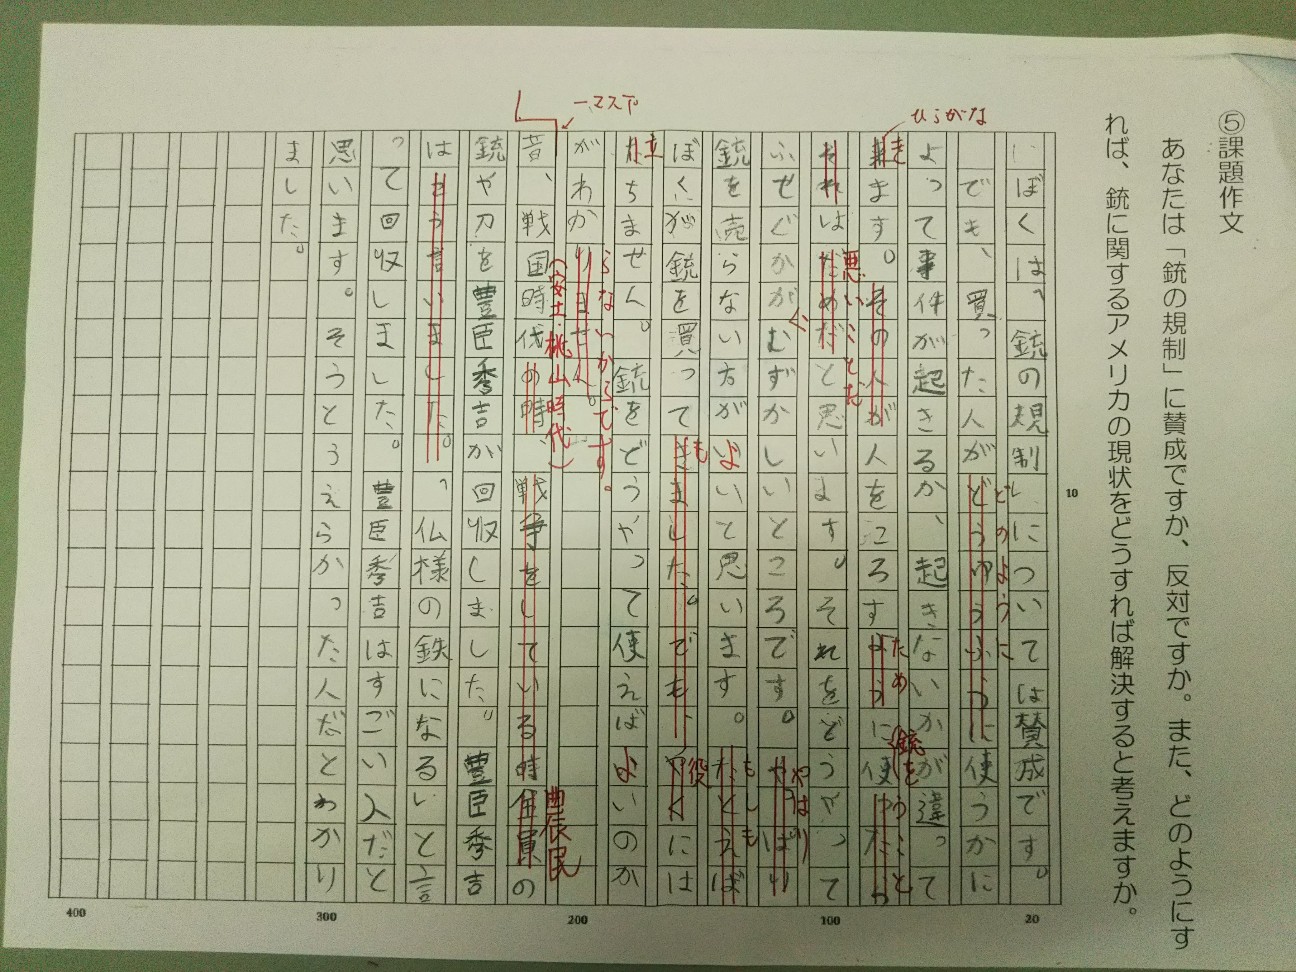 ⑤課題作文
あなたは「銃の規制」に賛成ですか、反対ですか。また、どのようにす
れば、銃に関するアメリカの現状をどうすれば解決すると考えますか。
ぼくは、銃の規制については賛成です。
でも、買った人がどうゆうふうに使うかに
どのように
よって事件が起きるか、起きないかが違って
ひらがな
き
来ます。その人が人をころすように使けたら
ため
銃を
うこと
それはだめだと思います。それをどうやって
悪いことだ
ふせぐかがむずかしいところです。やっぱり
ぐ
やはり
銃を売らない方がいいと思います。たとえば
よ
もしも
ぼくが銃を買ってきました。でも、やくには
も
役
たちません。銃をどうやって使えばよいのか
立
がわかりません。
らないからです。
一マス下
昔、戦国時代の時、戦争をしている時住員の
(安土・桃山時代)
農民
銃や刀を豊臣秀吉が回収しました。豊臣秀吉
はそう言いました。、仏様の鉄になるいと言
って回収しました。豊臣秀吉はすごい人だと
思います。そうとうえらかった人だとわかり
ました。
10
20
100
200
300
400